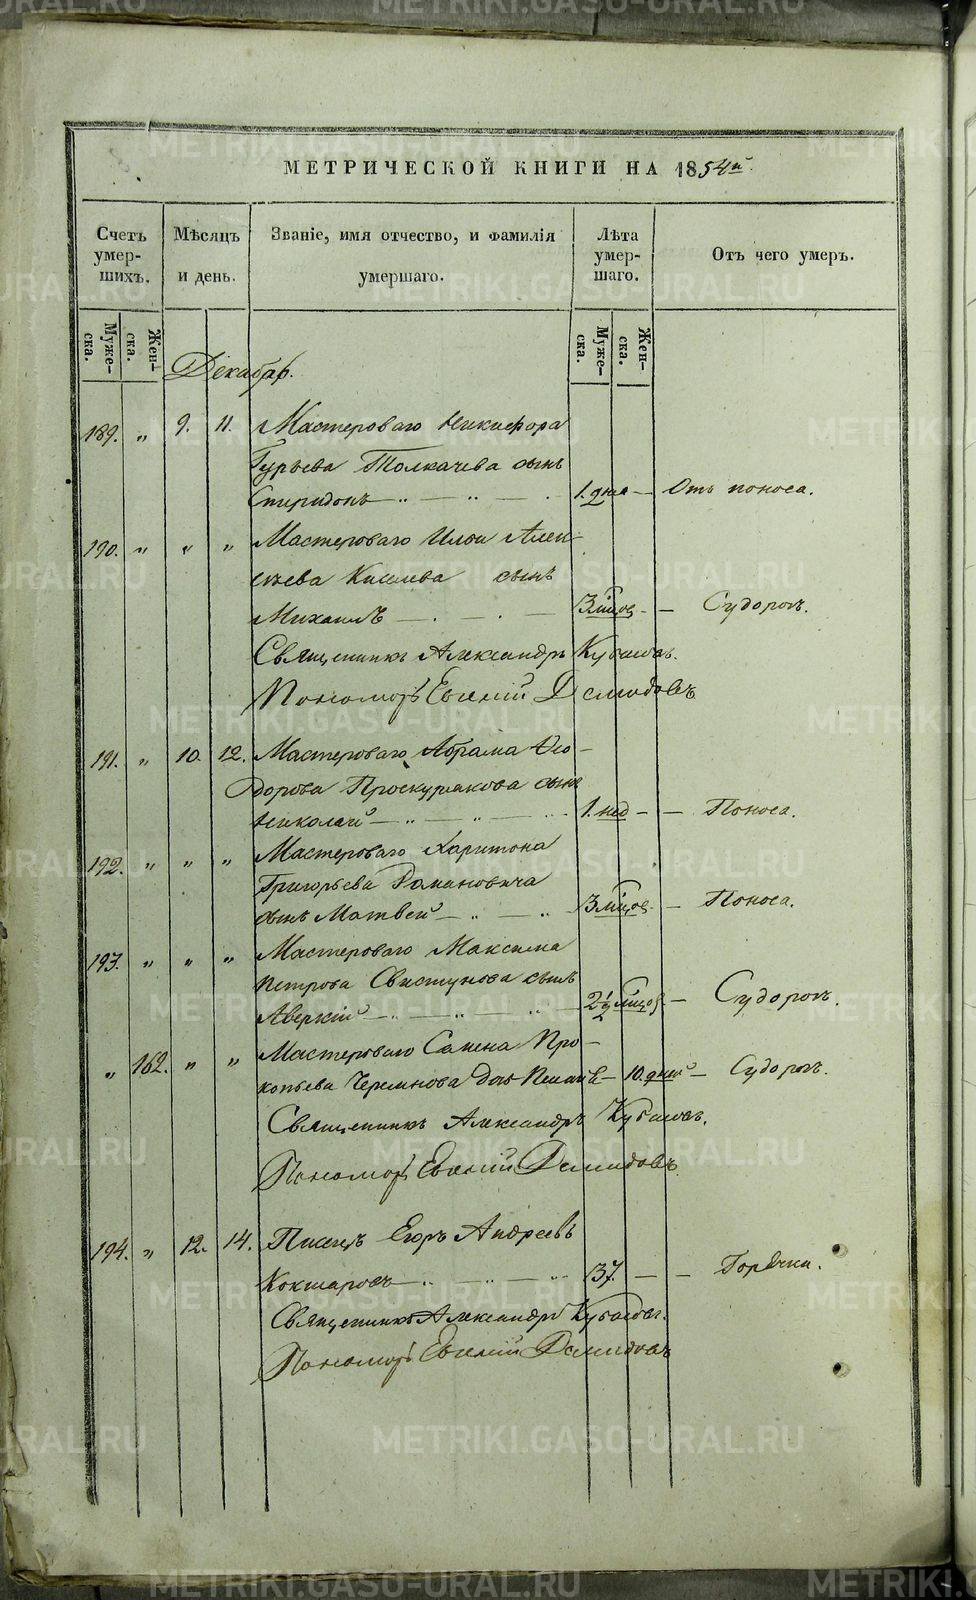 МЕТРИЧЕСКОЙ КНИГИ НА 1854й.
Счетъ умер-шихъ. Мѣсяцъ и день. Званіе, имя отчество, и фамилія умершаго. Лѣта умер-шаго. Отъ чего умеръ.
Муже-ска. Жен-ска. Муже-ска. Жен-ска.
Декабрь.
189. „ 9. 11. Мастероваго Никифора
Гурьева Толкачева сынъ
Спиридонъ — „ — „ — 1. дня — Отъ поноса.
190. „ „ „ Мастероваго Ильи Алек-
сѣева Киселева сынъ
Михаилъ — . — . — 3 мѣсяц. — — Судорогъ.
Священникъ Александръ Кубасовъ.
Пономарь Евгеній Демидовъ
191. „ 10. 12. Мастероваго Абрама Фео-
дорова Проскурякова сынъ
Николай — „ — „ — „ 1. нед — — Поноса.
192. „ „ „ Мастероваго Харитона
Григорьева Романовича
сынъ Матвей — „ — „ 3 мѣсяц. — Поноса.
193. „ „ „ Мастероваго Максима
Петрова Свистунова сынъ
Аверкій — „ — „ — „ — 2½ мѣсяц. — Судорогъ.
„ 162. „ „ Мастероваго Семена Про-
копьева дочь — 10. дней — Судорогъ.
Священникъ Александръ Кубасовъ.
Пономарь Евгеній Демидовъ
194. „ 12. 14. Писецъ Егоръ Андреевъ
Кокшаровъ — „ — „ — „ 37. — — Горячки.
Священникъ Александръ Кубасовъ.
Пономарь Евгеній Демидовъ
METRIKI.GASO-URAL.RU